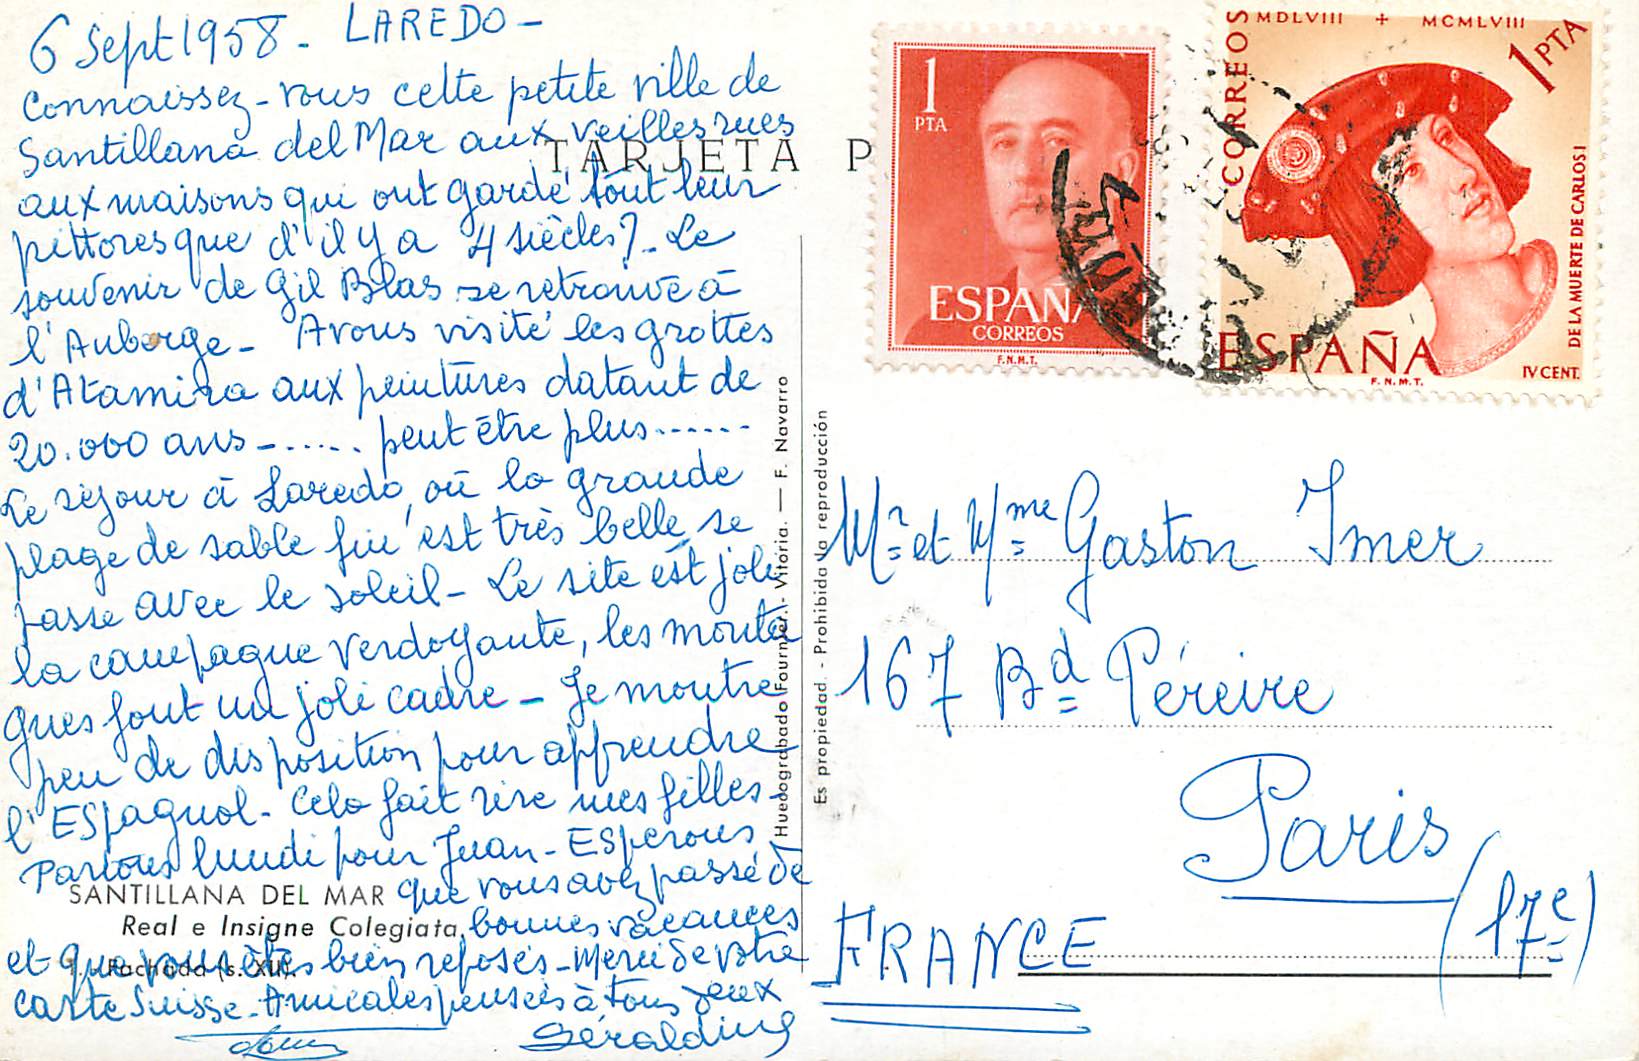 6 Sept 1958 - LAREDO -
Connaissez-vous cette petite ville de
Santillana del Mar aux veilles rues
aux maisons qui ont gardé tout leur
pittoresque d'il y a 4 siècles? - Le
souvenir de Gil Blas se retrouve à
l'Auberge - Avons visité les grottes
d'Atamira aux peintures datant de
20.000 ans - ...... peut être plus ......
Le séjour à Laredo, où la grande
plage de sable fin est très belle, se
passe avec le soleil - Le site est joli
la campagne verdoyante, les monta
gnes font un joli cadre - Je montre
peu de disposition pour apprendre
l'Espagnol - Cela fait rire mes filles -
Partons lundi pour Juan - Espérons
que vous avez passé de
bonnes vacances
et que vous êtes bien reposés - Merci de votre
carte Suisse - Amicales pensées à tous deux
Géraldine
SANTILLANA DEL MAR
Real e Insigne Colegiata
1. - Fachada (s. XII).
TARJETA P
Huecograbado Fournier. - Vitoria. — F. Navarro
Es propiedad. - Prohibida la reproducción
1
PTA
ESPAÑA
CORREOS
F.N.M.T.
MDLVIII + MCMLVIII
CORREOS
1 PTA
DE LA MUERTE DE CARLOS I
ESPAÑA
IV CENT.
F. N. M. T.
Mr et Mme Gaston Imer
167 Bd Péreire
Paris
(17e)
FRANCE